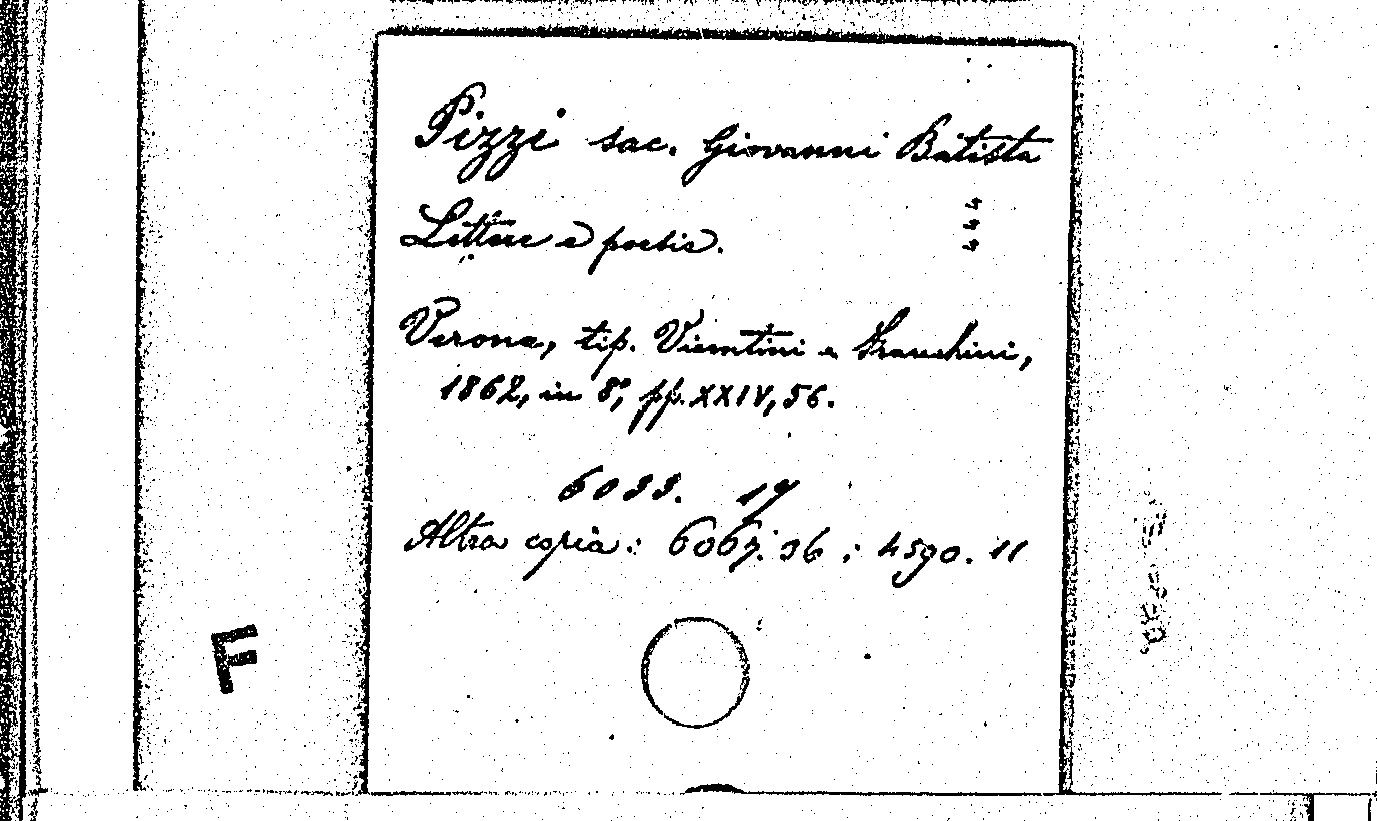 Pizzi sac. Giovanni Batista
444
Lettere e poesie.
Verona, tip. Vicentini e Franchini,
1862, in 8°, pp. XXIV, 56.
6033. 19
Altra copia: 6067. 36 ; 4590. 11
F